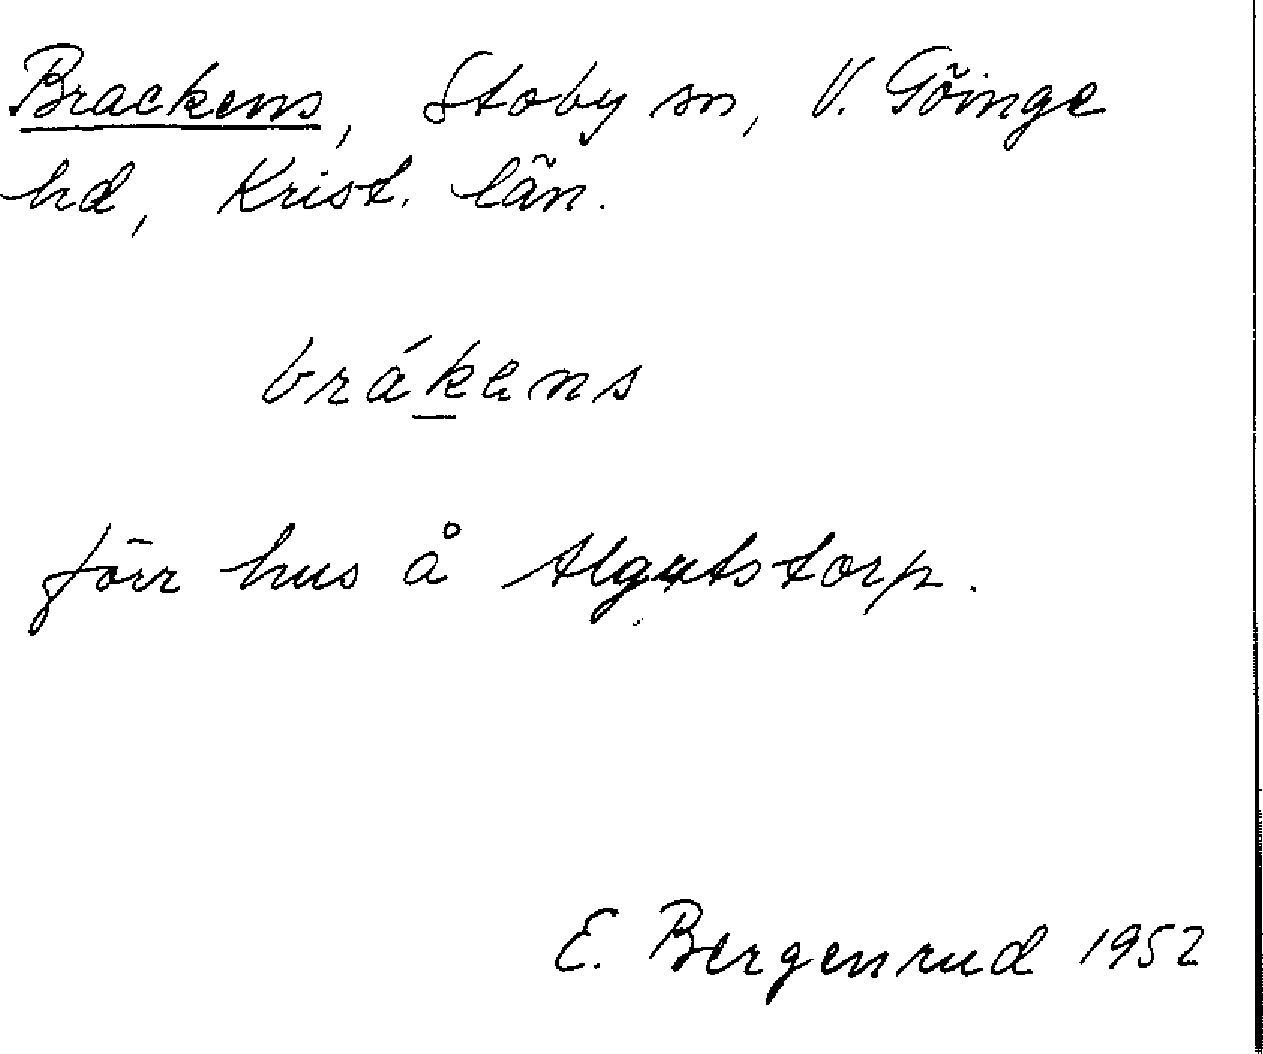 Brackens, Stoby sn, V. Göinge
hd, Krist. län.
brákens
förr hus å Algutstorp.
E. Bergenrud 1952